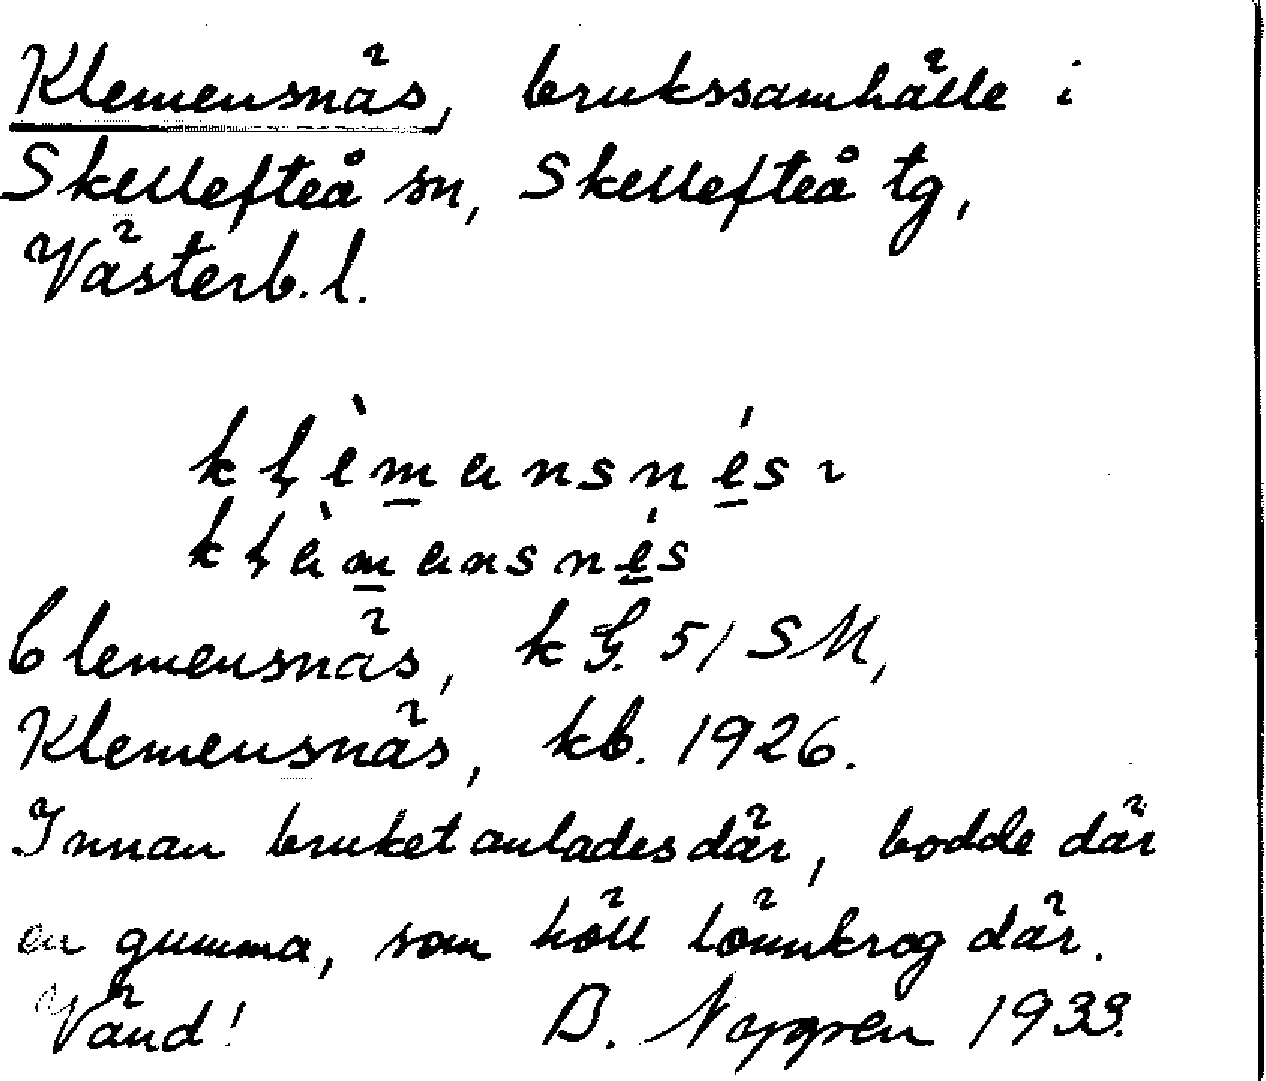 Klemensnäs, brukssamhälle i
Skellefteå sn, Skellefteå tg,
Västerb. l.
Clemensnäs, kG. 51 SM,
Klemensnäs, kb. 1926.
Innan bruket anlades där, bodde där
en gumma, som höll lönnkrog där.
Vänd! B. Nygren 1933.